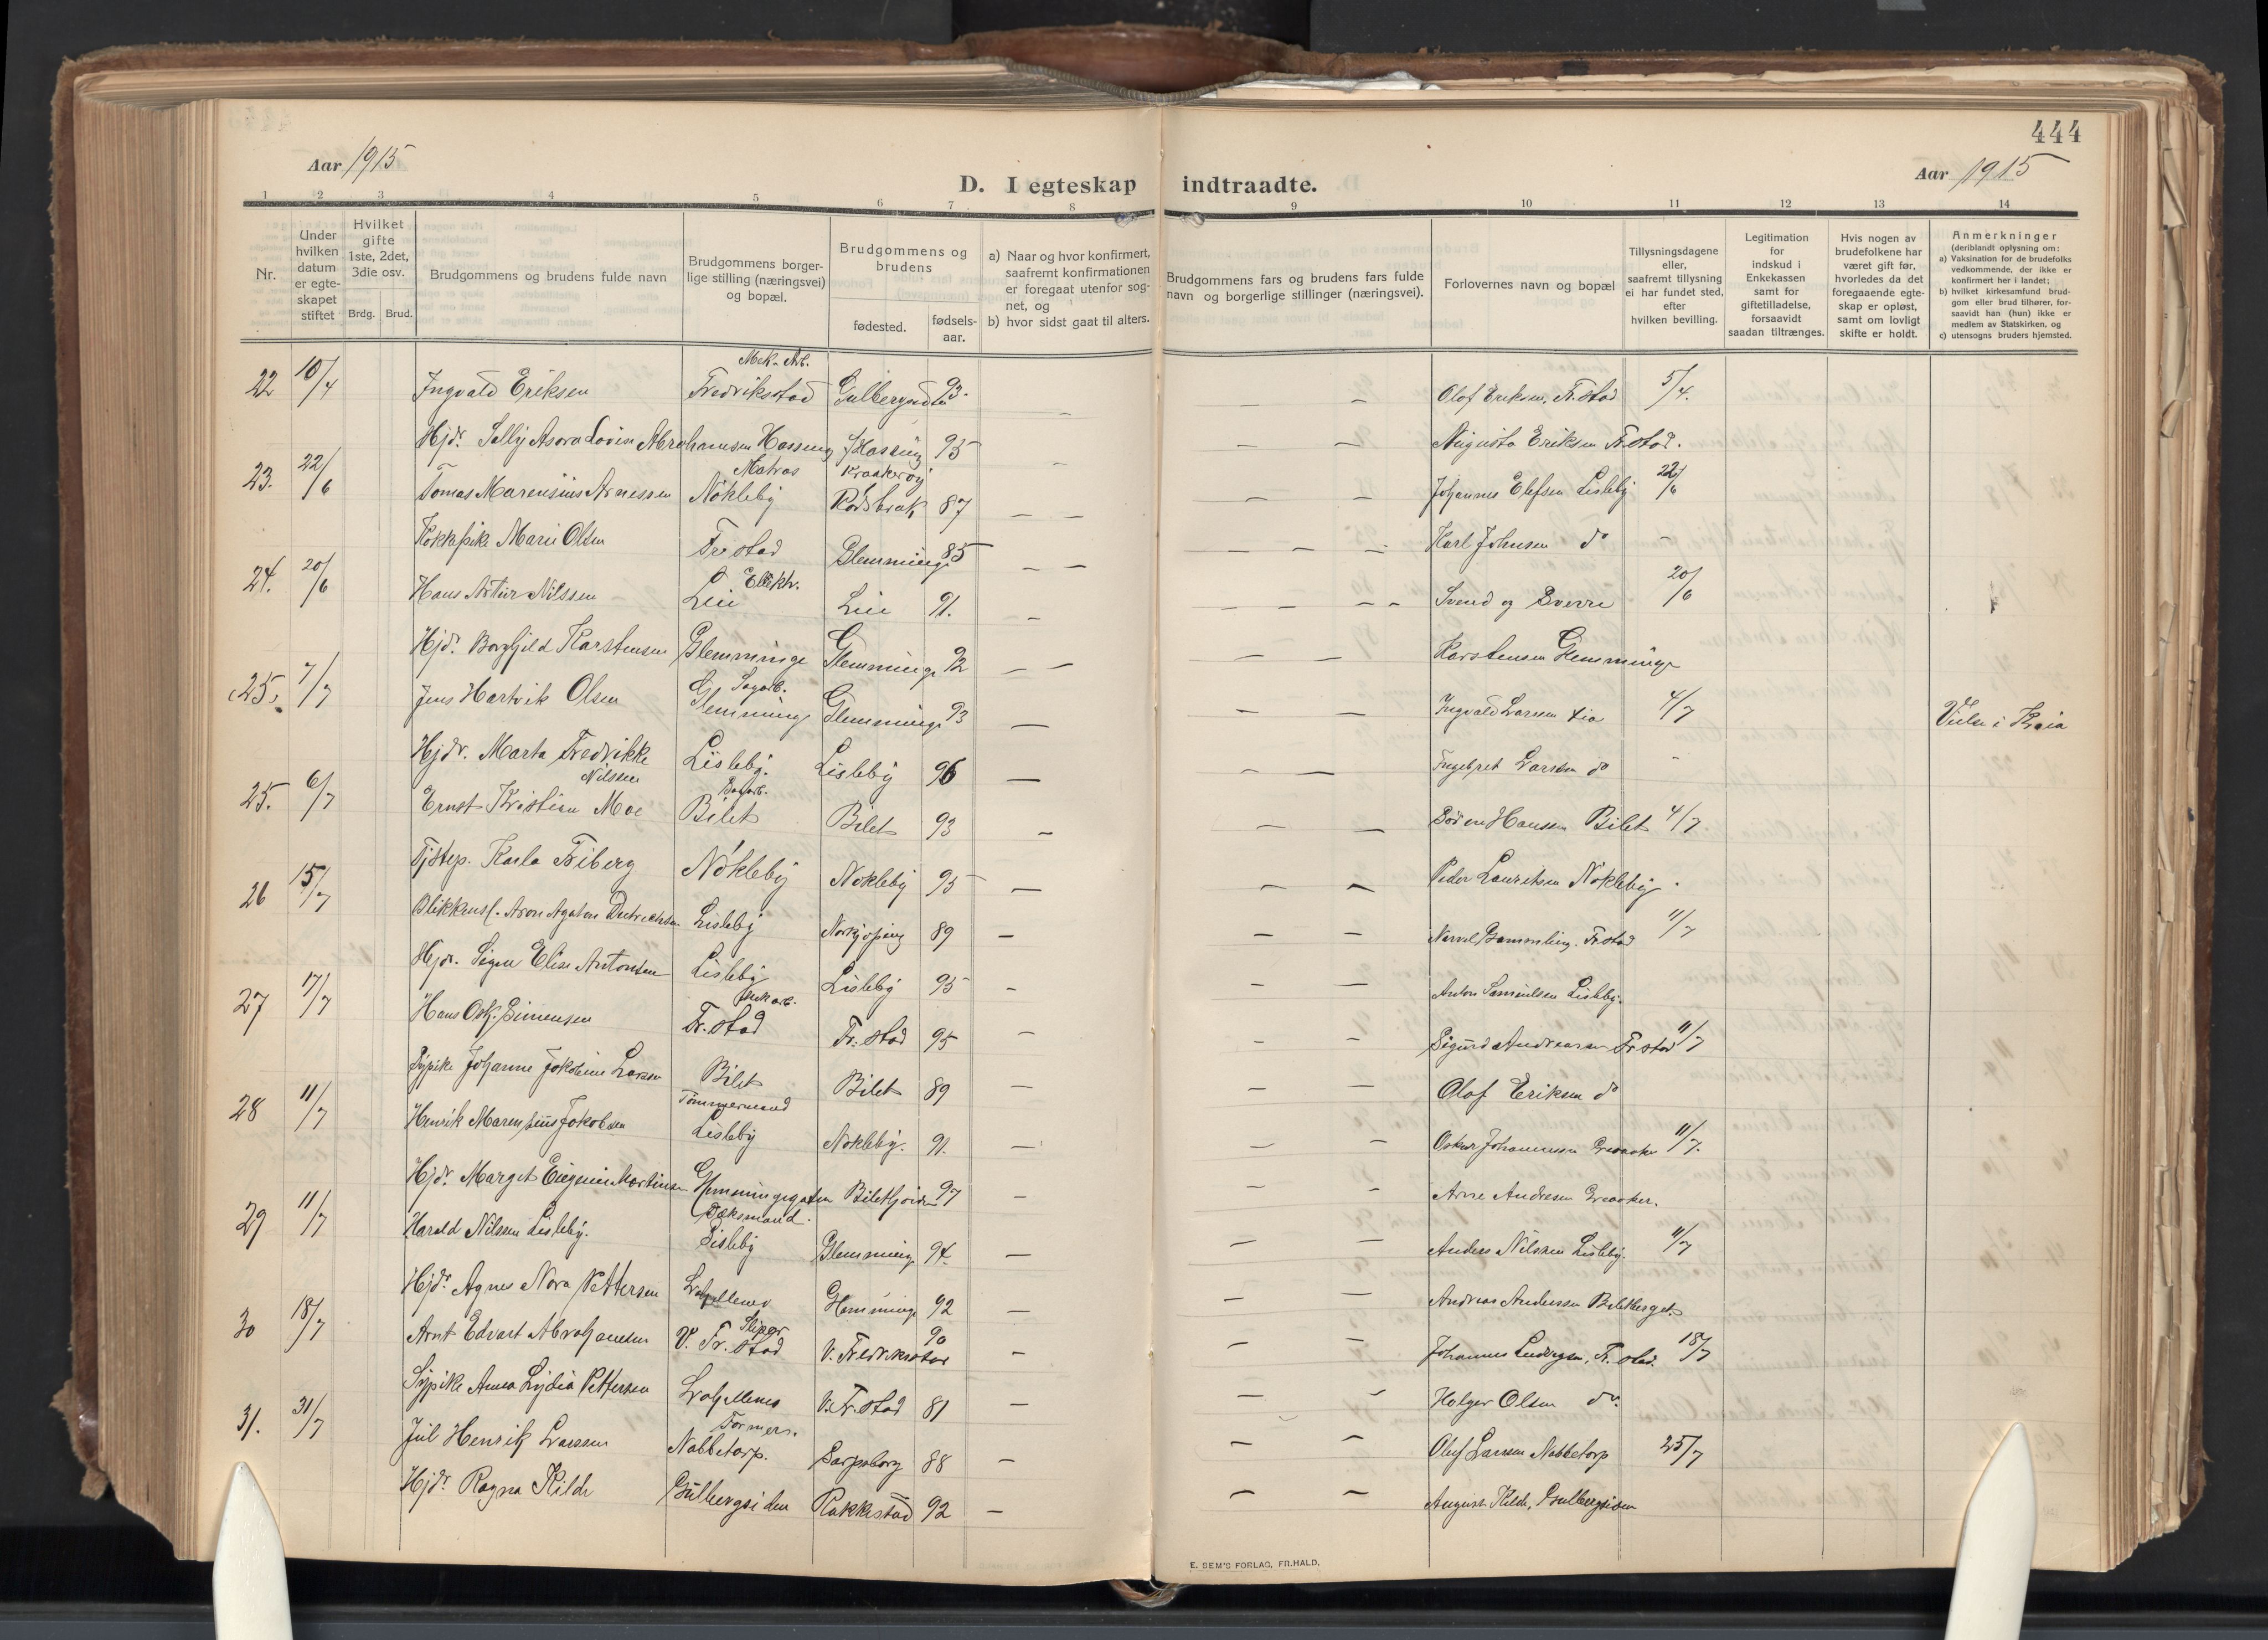 444
Aar 1915
Aar 1915
D. I egteskap indtraadte.
1 2 3 4 5 6 7 8 9 10 11 12 13 14
Nr.
Under hvilken datum er egte- skapet stiftet
Hvilket gifte 1ste, 2det, 3die osv.
Brdg. Brud.
Brudgommens og brudens fulde navn
Brudgommens borger- lige stilling (næringsvei) og bopæl.
Brudgommens og brudens
fødested.
fødsels- aar.
a) Naar og hvor konfirmert, saafremt konfirmationen er foregaat utenfor sog- net, og
b) hvor sidst gaat til alters.
Brudgommens fars og brudens fars fulde navn og borgerlige stillinger (næringsvei).
Forlovernes navn og bopæl
Tillysningsdagene eller, saafremt tillysning ei har fundet sted, efter hvilken bevilling.
Legitimation for indskud i Enkekassen samt for giftetilladelse, forsaavidt saadan tiltrænges.
Hvis nogen av brudefolkene har været gift før, hvorledes da det foregaaende egte- skap er opløst, samt om lovligt skifte er holdt.
Anmerkninger
(deriblandt oplysning om:
a) Vaksination for de brudefolks vedkommende, der ikke er konfirmert her i landet;
b) hvilket kirkesamfund brud- gom eller brud tilhører, for- saavidt han (hun) ikke er medlem av Statskirken, og
c) utensogns bruders hjemsted.
Mek. Arb.
22 10/4 Ingvald Eriksen Fredriksstad 93. — Olof Eriksen, Fr.stad 5/4.
Hjdr. Abrahamsen 95 — Augusta Eriksen Fr.stad.
Matros Kraakerøy
23. 22/6 Tomas Marensius Arnessen Nökleby 87 — Johannes Elefsen Lisleby 22/6
Kokkepike Marie Olsen Fr.stad Glemminge 85 — Karl Johnsen do
Elektr.
24. 20/6 Hans Artur Nilssen Lie Lie 91. — Svend og Sverre 20/6
Hjdr. Borghild Karstensen Glemminge Glemminge 92 — Karstensen Glemminge
Sagarb.
25. 7/7 Jens Hartvik Olsen Glemminge Glemminge 93 — Ingvald Larssen Lie 4/7
Hjdr. Marta Fredrikke Nilssen Lisleby. Lisleby 96 — Ingebret Larssen do
25. 6/7 Ernst Kristian Moe Bilet Bilet 93 — Sören Hansen Bilet 4/7
Karla Friberg Nökleby Nökleby 95 — Peder Lauritsen Nökleby.
26 15/7 Blikkensl. Aron Agaton Lisleby Norkjöping 89 — Fr.stad 11/7
Hjdr. Signe Elise Antonsen Lisleby Lisleby 95 — Anton Samuelsen Lisleby.
Mek arb.
27 17/7 Hans Osk. Simensen Fr. stad Fr. stad 95 — Sigurd Andreassen Fr stad 11/7
Sypike Johanne Jakobine Larsen Bilet Bilet 89 — Olof Eriksen do
Tömmermand
28 11/7 Henrik Marensius Jakobsen Lisleby Nökleby. 91. — Oskar Johannessen Greaaker 11/7.
Hjdr. Margit Eugenie Martinsen Glemmingegaten 97 — Arne Andresen Greaaker.
29 11/7 Harald Nilssen Lisleby. Lisleby Glemminge 94. — Anders Nilssen Lisleby. 11/7
Hjdr. Agnes Nora Pettersen Glemminge 92 — Andreas Anderssen Biletberget.
Sliper
30 18/7 Arnt Edvart Abrahamsen V. Fr. stad V. Fredriksstad 90 — Johannes Ludvigsen, Fr. stad. 18/7
Sypike Anna Lydia Pettersen V. Fr. stad 81 — Holger Olsen do.
31. 31/7 Jul Henrik Larssen Nabbetorp. Sarpsborg 88 — Oluf Larssen Nabbetorp 25/7
Hjdr Ragna Kilde Gulbergsiden Rakkestad 92 — August Kilde, Gulbergsiden
E. SEM'S FORLAG, FR.HALD.